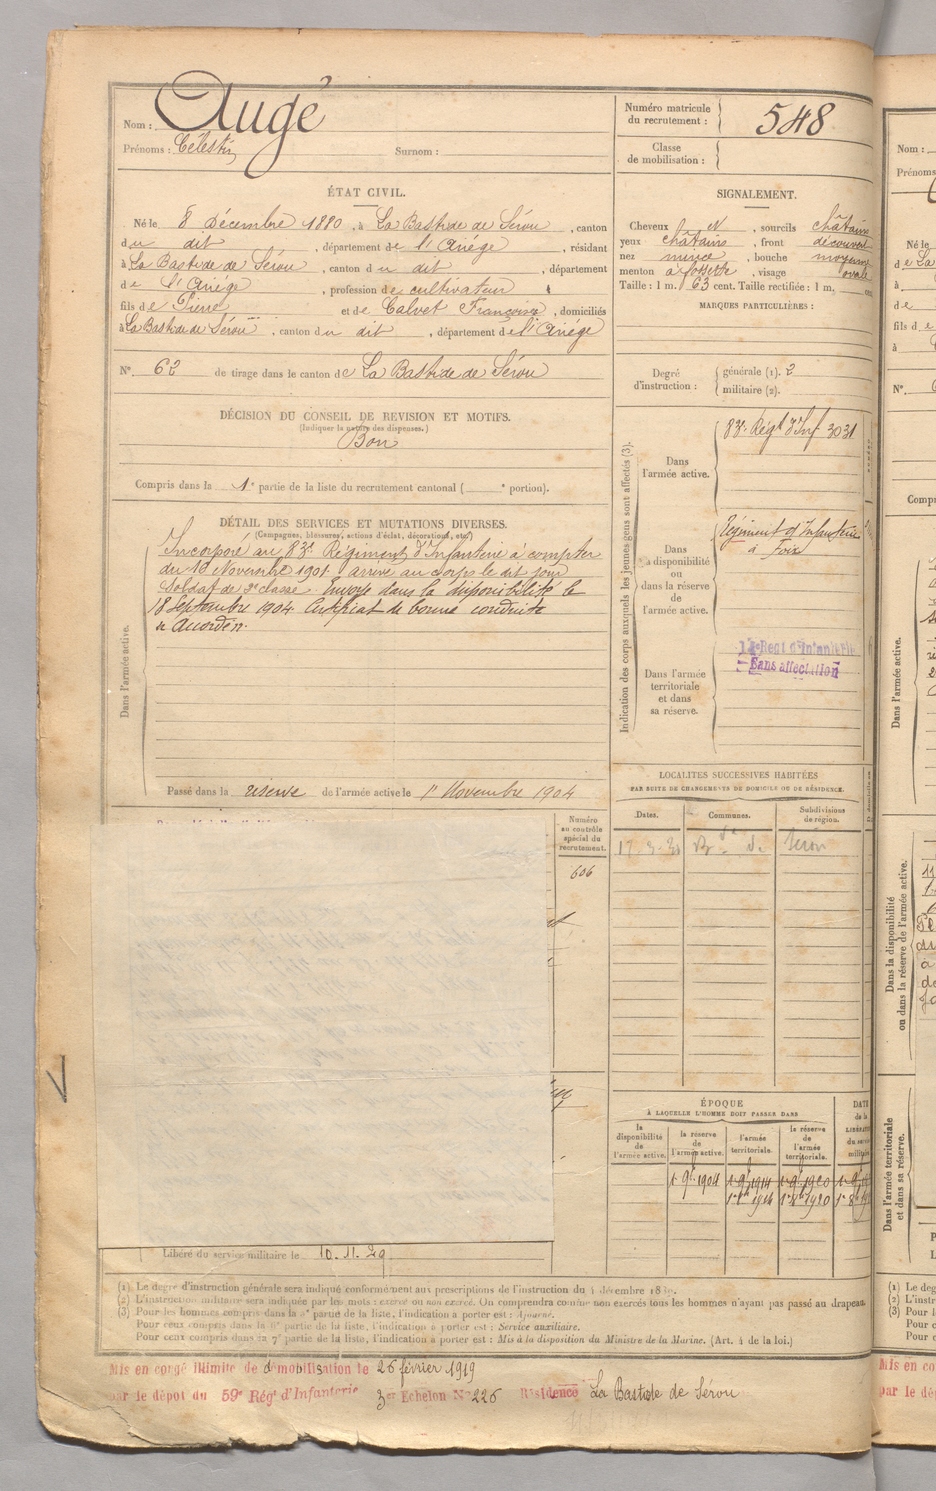 Nom : Augé
Prénoms : Célestin Surnom :
Numéro matricule du recrutement : 548
Classe de mobilisation :
ÉTAT CIVIL.
Né le 8 Décembre 1880, à La Bastide de Sérou, canton
du dit, département de l'Ariège, résidant
à La Bastide de Sérou, canton du dit, département
de l'Ariège, profession de cultivateur
fils de Pierre et de Calvet Françoise, domiciliés
à La Bastide de Sérou, canton du dit, département de l'Ariège
N° 62 de tirage dans le canton de La Bastide de Sérou
DÉCISION DU CONSEIL DE REVISION ET MOTIFS.
(Indiquer la nature des dispenses.)
Bon
Compris dans la 1e partie de la liste du recrutement cantonal ( e portion).
SIGNALEMENT.
Cheveux N, sourcils châtains
yeux châtains, front découvert
nez mince, bouche moyenne
menton à fossette, visage ovale
Taille : 1 m. 63 cent. Taille rectifiée : 1 m, cent
MARQUES PARTICULIÈRES :
Degré d'instruction : générale (1). 2
militaire (2).
DÉTAIL DES SERVICES ET MUTATIONS DIVERSES.
(Campagnes, blessures, actions d'éclat, décorations, etc.)
Dans l'armée active.
Incorporé au 83e Régiment d'Infanterie à compter
du 16 Novembre 1901 arrivé au corps le dit jour
Soldat de 2e classe. Envoyé dans la disponibilité le
18 Septembre 1904. Certificat de bonne conduite
"Accordé".
Passé dans la réserve de l'armée active le 1er Novembre 1904
Indication des corps auxquels les jeunes gens sont affectés (3).
Dans l'armée active.
83e Régt d'Inf 3031
Dans la disponibilité ou dans la réserve de l'armée active.
Régiment d'Infanterie
à Foix
Dans l'armée territoriale et dans sa réserve.
Regt d'Infanterie
Sans affectation
LOCALITÉS SUCCESSIVES HABITÉES
PAR SUITE DE CHANGEMENTS DE DOMICILE OU DE RÉSIDENCE.
Dates. Communes. Subdivisions de région.
Sérou
Numéro au contrôle spécial du recrutement.
606
ÉPOQUE
À LAQUELLE L'HOMME DOIT PASSER DANS
la disponibilité de l'armée active. la réserve de l'armée active. l'armée territoriale. la réserve de l'armée territoriale.
1er 9bre 1904 1er 9bre 1914 1er 9bre 1920
1914 1920
Libéré du service militaire le 10.11.29
(1) Le degré d'instruction générale sera indiqué conformément aux prescriptions de l'instruction du 4 décembre 18
(2) L'instruction militaire sera indiquée par les mots : exercé ou non exercé. On comprendra comme non exercés tous les hommes n'ayant pas passé au drapeau.
(3) Pour les hommes compris dans la partie de la liste, l'indication à porter est : Ajourné.
Pour ceux compris dans la partie de la liste, l'indication à porter est : Service auxiliaire.
Pour ceux compris dans la 7e partie de la liste, l'indication à porter est : Mis à la disposition du Ministre de la Marine. (Art. 4 de la loi.)
Mis en congé illimité de démobilisation le 26 février 1919
par le dépôt du 59e Rég' d'Infanterie 3er Echelon N° 226 Résidence La Bastide de Sérou
Nom :
Prénoms
Né le
fils de
à
N°
Compris
Dans l'armée active.
Dans la disponibilité
ou dans la réserve de l'armée active.
Dans l'armée territoriale
et dans sa réserve.
(1) Le deg
(2) L'instr
(3) Pour l
Pour c
Pour c
Mis en co
par le dé